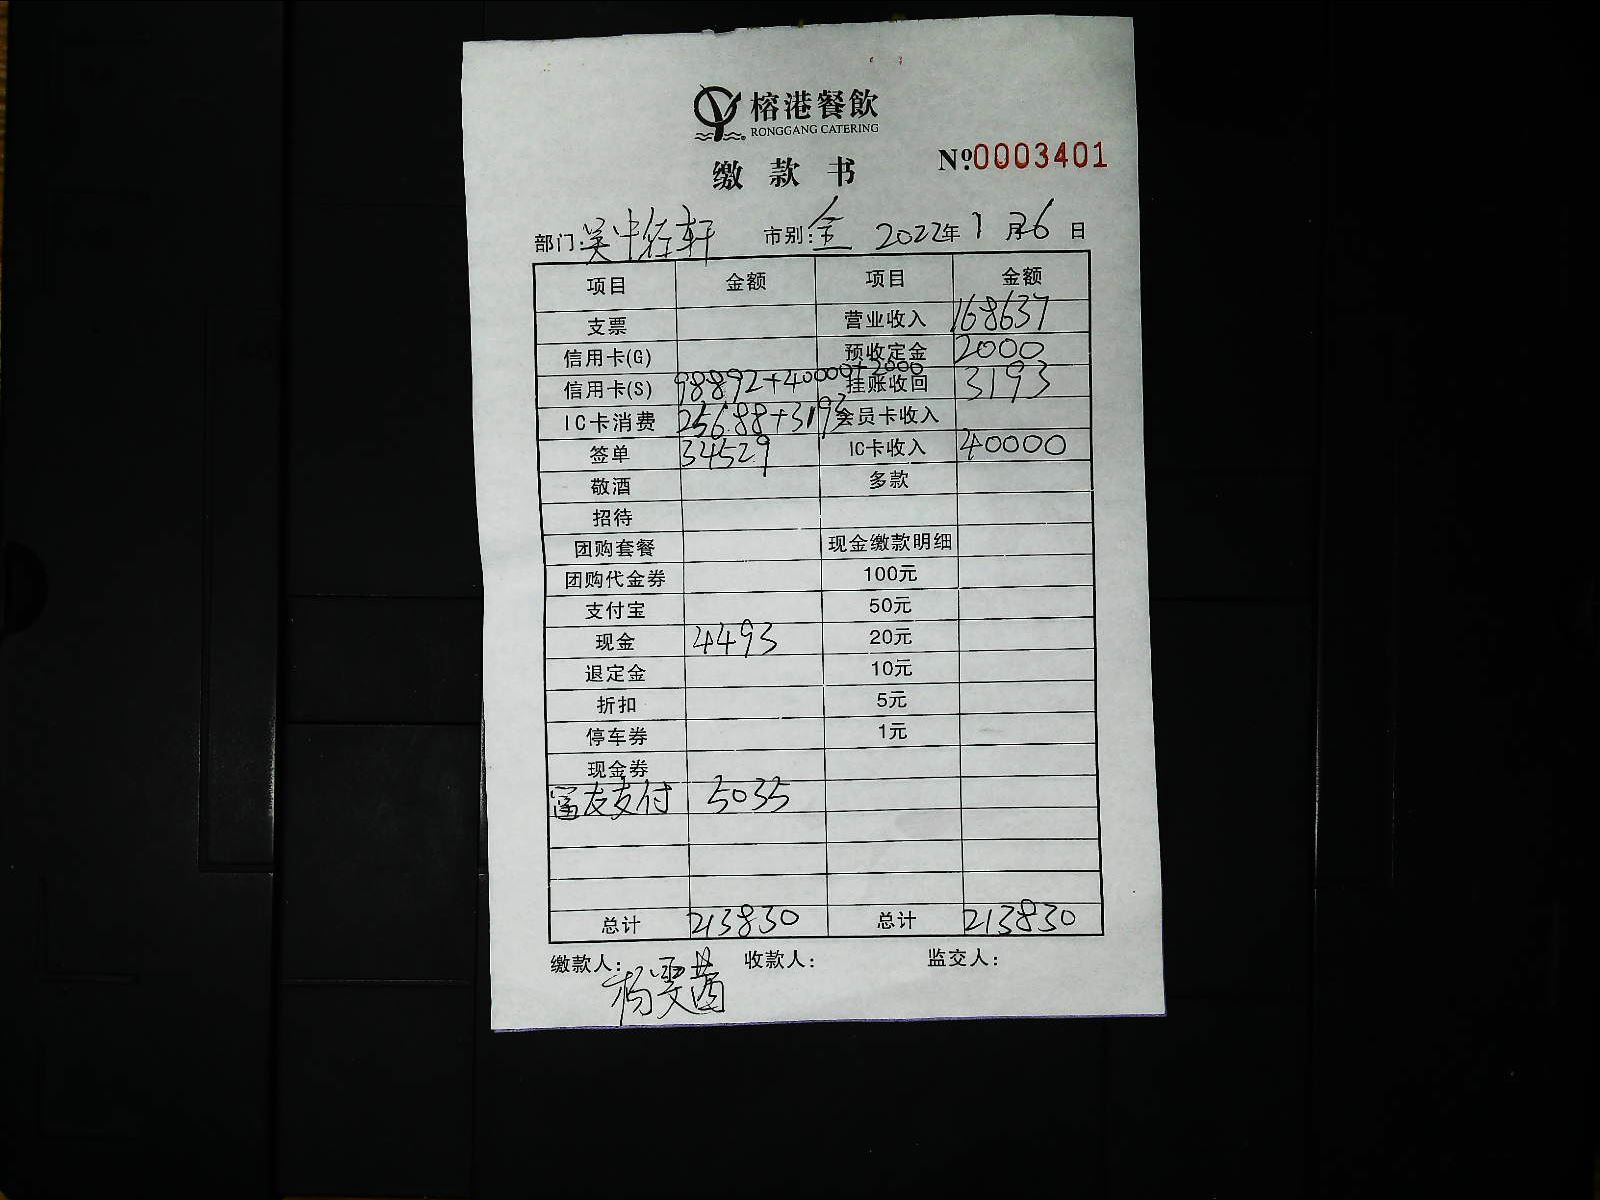 榕港餐飲
RONGGANG CATERING
缴款书 Nº:0003401
部门: 吴中轩 市别: 全 2022年1月26日
项目 金额 项目 金额
支票 营业收入 168637
信用卡(G) 预收定金 2000
信用卡(S) 98892+40000+2000 挂账收回 3193
IC卡消费 25688+3193 会员卡收入
签单 34529 IC卡收入 40000
敬酒 多款
招待
团购套餐 现金缴款明细
团购代金券 100元
支付宝 50元
现金 4493 20元
退定金 10元
折扣 5元
停车券 1元
现金券
友支付 5035
总计 213830 总计 213830
缴款人: 杨雯 收款人: 监交人: